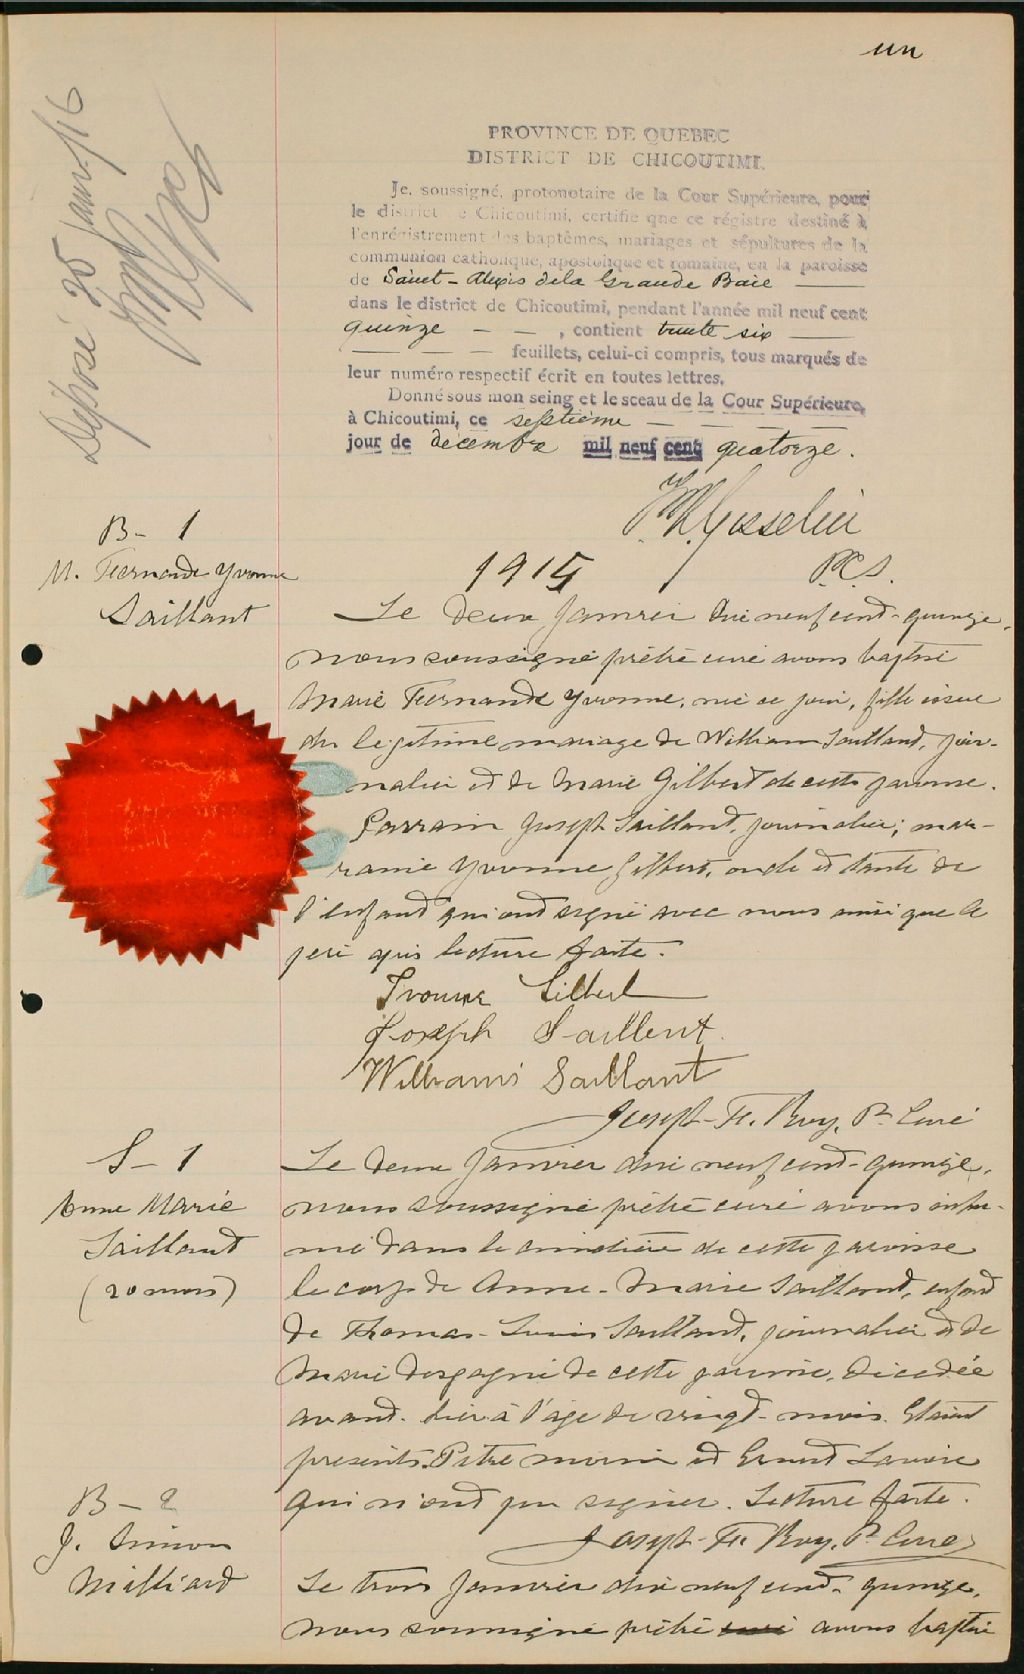 un
Déposé 25 janv./16
PROVINCE DE QUEBEC
DISTRICT DE CHICOUTIMI.
Je, soussigné, protonotaire de la Cour Supérieure, pour
le district de Chicoutimi, certifie que ce régistre destiné à
l'enrégistrement des baptêmes, mariages et sépultures de la
communion catholique, apostolique et romaine, en la paroisse
de Saint-Alexis de la Grande Baie
dans le district de Chicoutimi, pendant l'année mil neuf cent
quinze — — , contient trente six
feuillets, celui-ci compris, tous marqués de
leur numéro respectif écrit en toutes lettres.
Donné sous mon seing et le sceau de la Cour Supérieure,
à Chicoutimi, ce septième
jour de décembre mil neuf cent quatorze.
Gosselin
P.C.S.
1915
B- 1
M. Fernande Yvonne
Saillant
Le deux janvier dix neuf cent-quinze,
nous soussigné prêtre curé avons baptisé
Marie Fernande Yvonne, née ce jour, fille issue
du légitime mariage de William Saillant, jour-
nalier et de Marie Gilbert de cette paroisse.
Parrain Joseph Saillant, journalier; mar-
raine Yvonne Gilbert, oncle et tante de
l'enfant qui ont signé avec nous ainsi que le
père après lecture faite.
Yvonne Gilbert
Joseph Saillent
William Saillant
Joseph-. Roy, Ptre Curé
S- 1
Anne Marie
Saillant
(20 mois)
Le deux janvier dix neuf cent-quinze,
nous soussigné prêtre curé avons inhu-
mé dans le cimetière de cette paroisse
le corps de Anne-Marie Saillant, enfant
de Thomas-Louis Saillant, journalier et de
Marie Desgagné de cette paroisse, décédée
avant-hier à l'âge de vingt-mois. Etaient
présents Pitre Morin et Ernest Lavoie
qui n'ont pu signer. Lecture faite.
Joseph-. Roy, Ptre Curé
B- 2
J. Simon
Milliard
Le trois janvier dix neuf cent-quinze,
nous soussigné prêtre curé avons baptisé